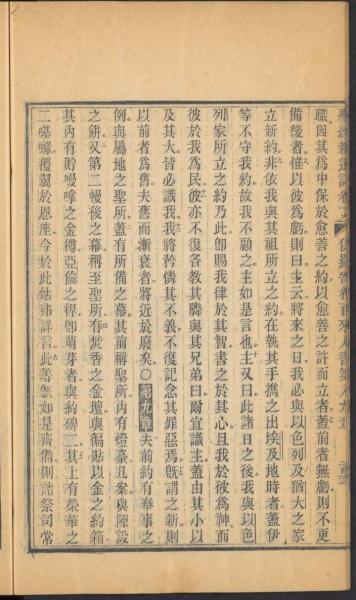 職因其為中保於愈善之約以愈善之許而立者蓋前者無虧則不更
備後者惟以彼為虧則曰主云將來之日我必與以色列及猶大之家
立新約非依我與其祖所立之約在執其手攜之出埃及地時者蓋伊
等不守我約故我不顧之主如是言也又曰此諸日之後我與以色
列家所立之約乃此卽賜我律於其智書之於其心且我於彼為神而
彼於我為民彼亦不復各教其隣與其兄弟曰爾宜識主蓋由其小以
及其大皆必識我我將矜憐其不義不復記念其罪惡焉旣謂之新則
以前者為舊夫舊而漸衰者將近於廢矣○第九章夫前約有奉事之
例與屬地之聖所蓋有所備之幕其前稱聖所內有燈臺几案與陳設
之餅又第二幔後之幕稱至聖所有焚香之金壇與徧貼以金之約箱
其內有貯嗎嗱之金樽亞倫之桿卽萌芽者與約碑二其上有榮華之
二𠼻嚹覆翼於恩座今於此姑弗詳言此等旣如是齊備則諸祭司常